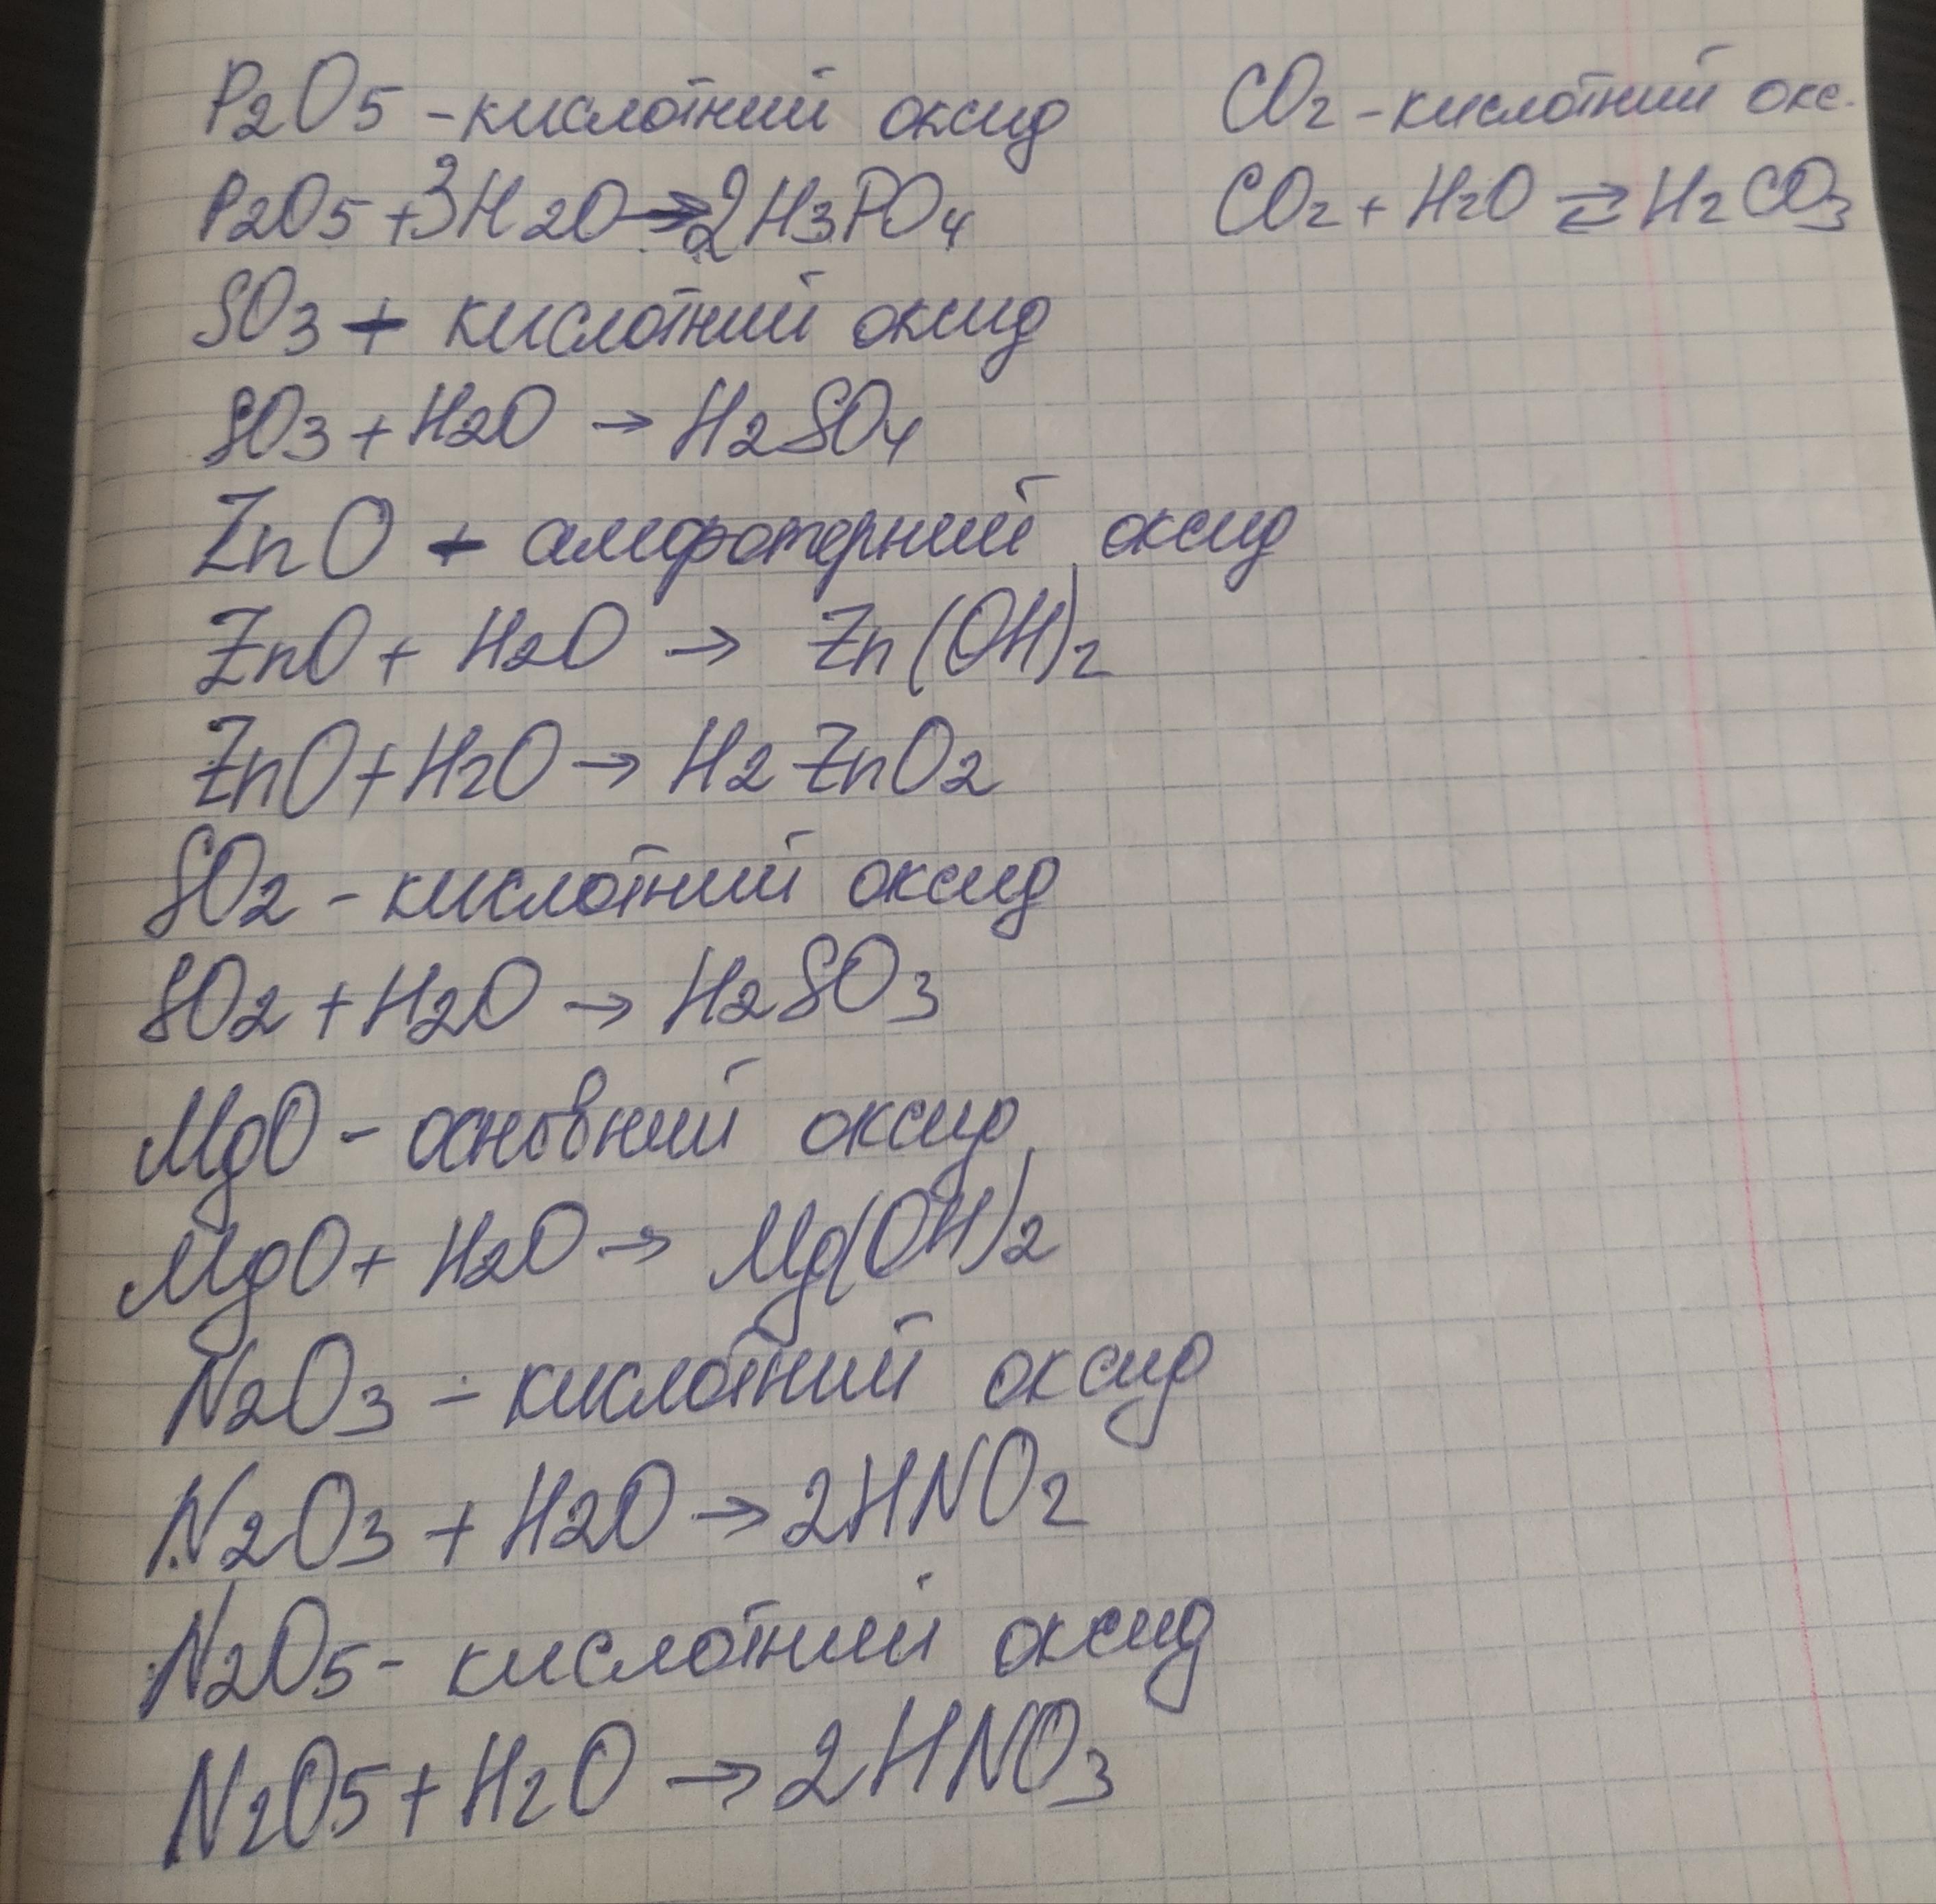 P2O5 - кислотний оксид
P2O5 + 3H2O → 2H3PO4
SO3 - кислотний оксид
SO3 + H2O → H2SO4
ZnO - амфотерний оксид
ZnO + H2O → Zn(OH)2
ZnO + H2O → H2ZnO2
SO2 - кислотний оксид
SO2 + H2O → H2SO3
MgO - основний оксид
MgO + H2O → Mg(OH)2
N2O3 - кислотний оксид
N2O3 + H2O → 2HNO2
N2O5 - кислотний оксид
N2O5 + H2O → 2HNO3
CO2 - кислотний окс.
CO2 + H2O ⇄ H2CO3